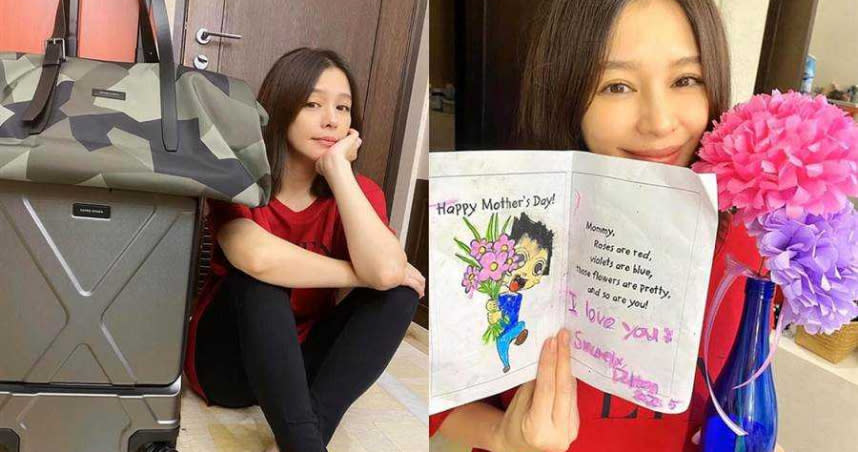 Happy Mother's Day!
Mommy,
Roses are red,
violets are blue,
These flowers are pretty,
and so are you!
I love you